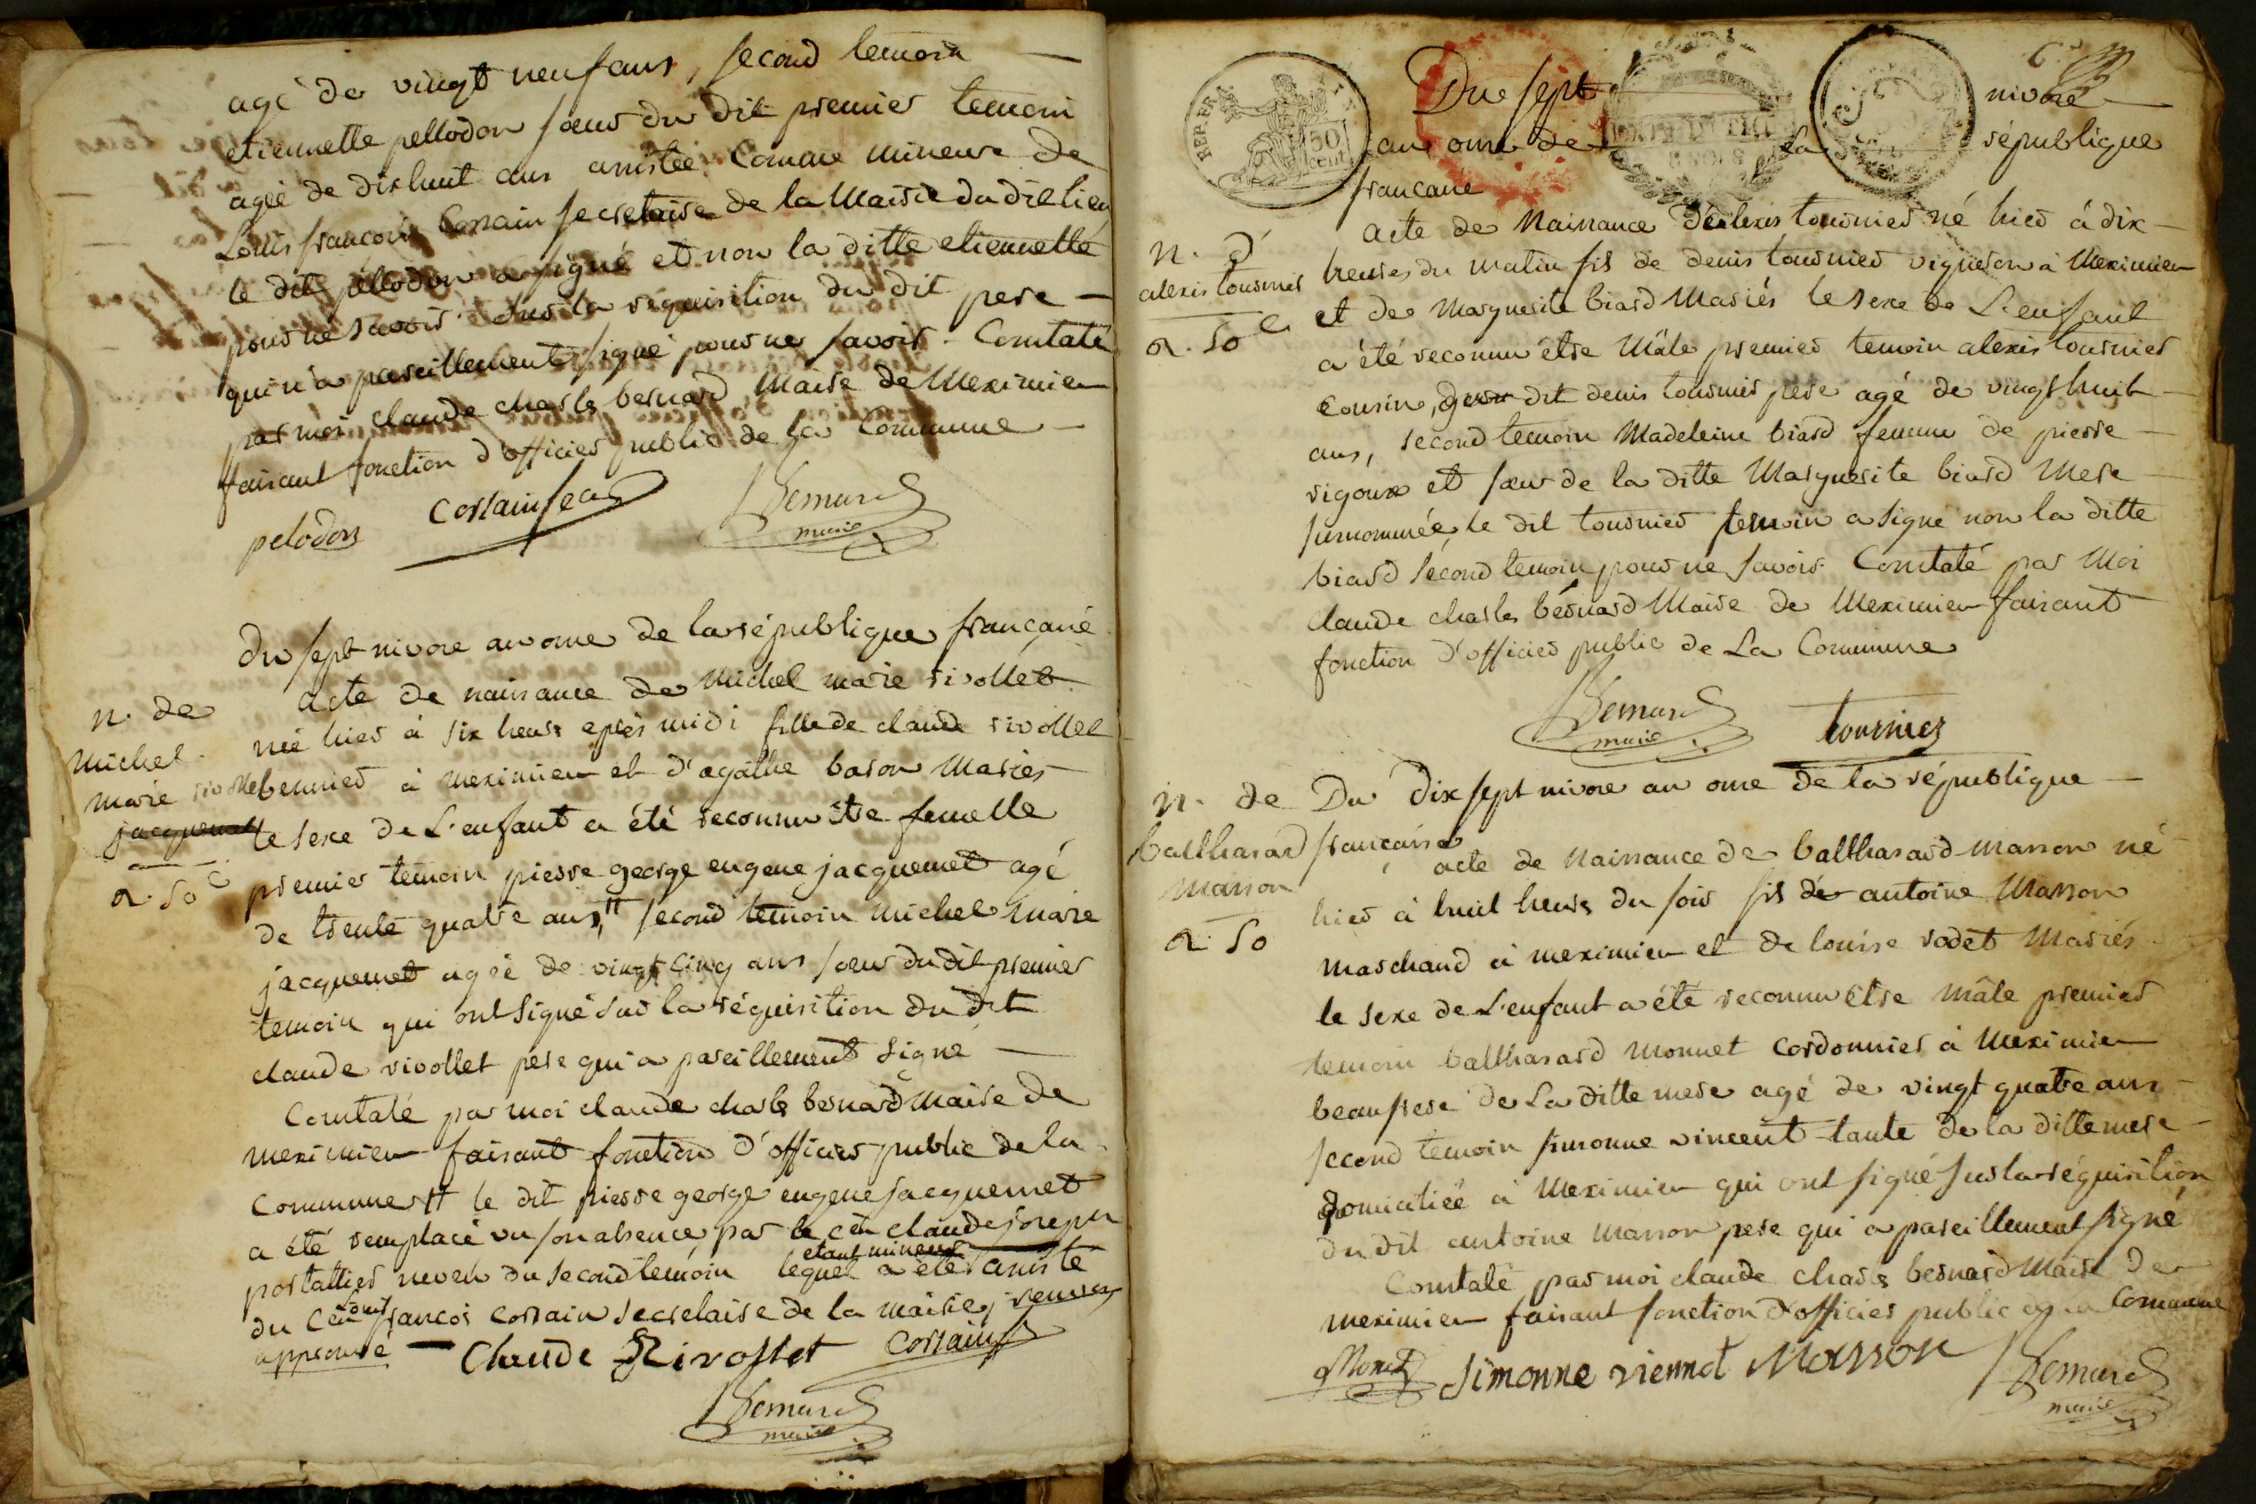 agé de vingt neuf ans, second temoin
etiennette pellodon sœur du dit premier temoin
agée de dix huit ans assistée comme mineure de
Louis françois Cossain secretaire de la Mairie du dit lieu
le dit pellodon a signé et non la ditte etiennette
pour ne savoir sur la requisition du dit pere
qui n'a pareillement signé pour ne savoir. Constaté
par moi claude charles bernard Maire de Meximieu
faisant fonction d'officier public de la Commune
pelodon Cossain sec Bernard
maire
du sept nivose an onze de la république française
n. de
Michel
marie rivollet
jacquemet
a. 50 c
acte de naissance de Michel marie rivollet
née hier à six heures après midi fille de claude rivollet
à meximieu et d'agathe baron Mariés
le sexe de L'enfant a été reconnu être femelle
premier temoin pierre george eugene jacquemet agé
de trente quatre ans, second temoin michel marie
jacquemet agée de vingt cinq ans sœur du dit premier
temoin qui ont signé sur la réquisition du dit
claude rivollet père qui a pareillement signé
Constaté par moi claude charles bernard Maire de
meximieu faisant fonction d'officier public de la
Commune le dit pierre george eugene jacquemet
a été remplacé vu son absence par le cen claude joseph
portallier neveu du second temoin lequel etant mineur a été assisté
du Cen Louis françois Cossain secretaire de la mairie, renvoy
approuvé Claude Rivollet Cossain
Bernard
maire
REP. FRA.
50
cent
Du sept nivose
an onze de la république
francaise
n. d'
alexis tournier
a. 50 c
acte de Naissance d'alexis tournier né hier à dix
heures du matin fils de denis tournier vigneron à Meximieu
et de Marguerite biard Mariés le sexe de L'enfant
a été reconnu être Mâle premier temoin alexis tournier
cousin, du dit denis tournier pere agé de vingt huit
ans, second temoin Madeleine biard femme de pierre
rigoux et sœur de la ditte Marguerite biard Mere
surnommée, le dit tournier temoin a signé non la ditte
biard second temoin pour ne savoir. Constaté par Moi
claude charles bérnard Maire de Meximieu faisant
fonction d'officier public de La Commune
Bernard tournier
maire
n. de
balthasard
masson
a. 50
Du dix sept nivose an onze de la république
française
acte de Naissance de balthasard masson né
hier à huit heures du soir fils de antoine Masson
marchand à meximieu et de louise rodet Mariés
le sexe de L'enfant a été reconnu être mâle premier
temoin balthasard monnet cordonnier à Meximieu
beaufrere de La ditte mere agé de vingt quatre ans
second temoin simonne vincent tante de la ditte mere
domiciliée à Meximieu qui ont signé sur la réquisition
du dit antoine masson pere qui a pareillement signé
Constaté par moi claude charles bernard Maire de
meximieu faisant fonction d'officier public de la Commune
Monet Simonne viennot Masson Bernard
maire